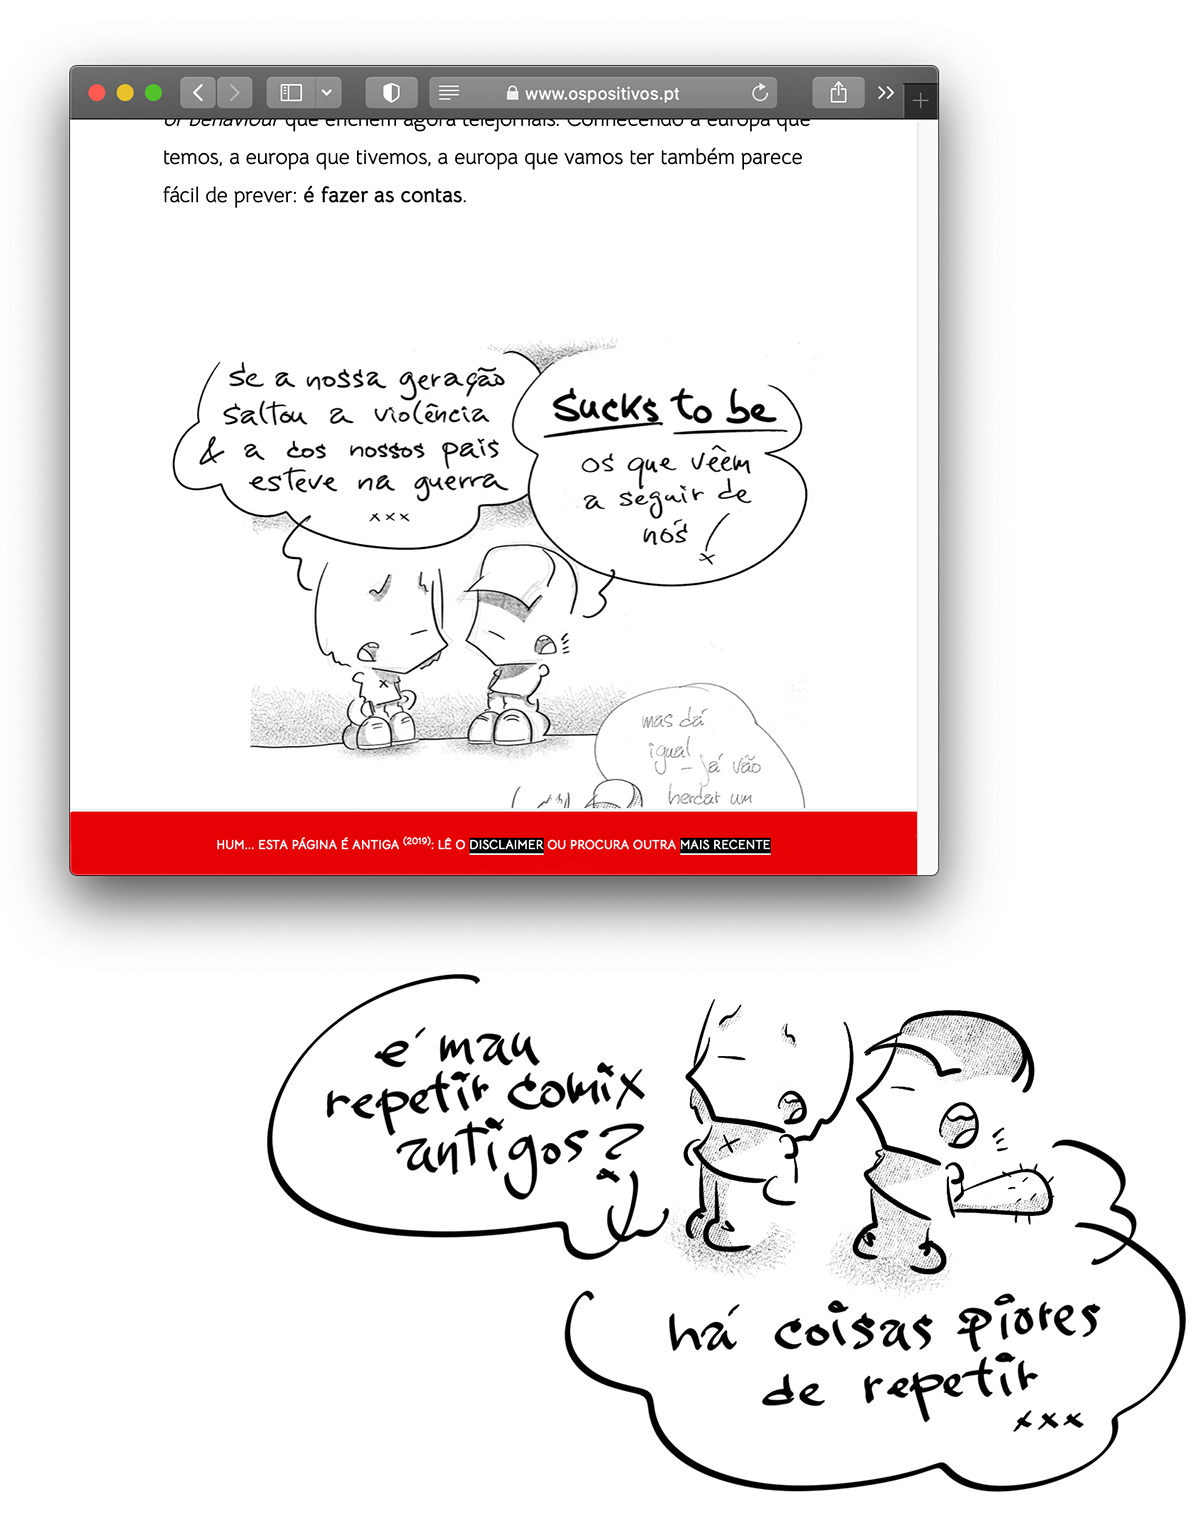 www.ospositivos.pt
of behaviour que enchem agora telejornais. Conhecendo a europa que
temos, a europa que tivemos, a europa que vamos ter também parece
fácil de prever: é fazer as contas.
se a nossa geração
saltou a violência
& a dos nossos pais
esteve na guerra
xxx
sucks to be
os que vêem
a seguir de
nós
x
mas dá
igual
– já vão
herdar um
HUM... ESTA PÁGINA É ANTIGA (2019): LÊ O DISCLAIMER OU PROCURA OUTRA MAIS RECENTE
é mau
repetir comix
antigos?
há coisas piores
de repetir
xxx